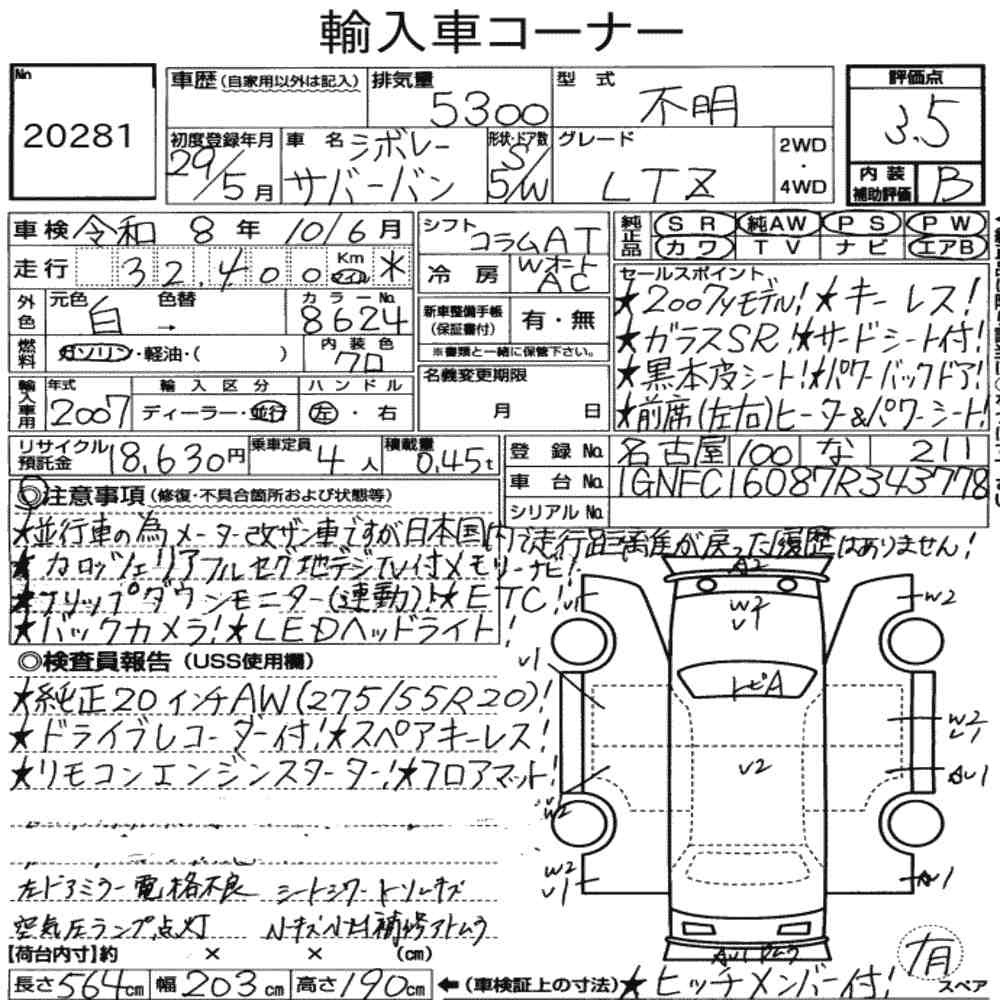 輸入車コーナー
No 20281
車歴 (自家用以外は記入) 排気量 5300 型式 不明 評価点 3.5
初度登録年月 29/5月 車名 シボレー サバーバン 形状・ドア数 S/5/W グレード LTZ 2WD・4WD 内装補助評価 B
車検 令和 8年 10/6月 シフト コラムAT 純正品 SR 純AW PS PW
走行 32,400 Km マイル * 冷房 Wオート AC カワ TV ナビ エアB
外色 元色 白 色替 → カラーNo. 8624 新車整備手帳 (保証書付) 有・無
※書類と一緒に保管下さい。
燃料 ガソリン・軽油・( ) 内装色 クロ
輸入車用 年式 2007 輸入区分 ディーラー・並行 ハンドル 左・右 名義変更期限 月 日
セールスポイント
★2007yモデル!★キーレス!
★ガラスSR!★サードシート付!
★黒本皮シート!★パワーバックドア!
★前席(左右)ヒーター&パワーシート!
リサイクル預託金 18,630円 乗車定員 4人 積載量 0.45t
登録No. 名古屋 100 な 211
車台No. 1GNFC16087R343778
シリアルNo.
◎注意事項 (修復・不具合箇所および状態等)
★並行車の為メーター改ザン車ですが日本国内で走行距離が戻った履歴はありません!
★カロッツェリアフルセグ地デジTV付メモリーナビ!
★フリップダウンモニター(連動)!★ETC!
★バックカメラ!★LEDヘッドライト!
◎検査員報告 (USS使用欄)
★純正20インチAW(275/55R20)!
★ドライブレコーダー付!★スペアキーレス!
★リモコンエンジンスターター!★フロアマット!
左ドアミラー電格不良 シートシワ
空気圧ランプ点灯
A2
W2
U1
W2
U1
トビA
W2
U2
AU1
W2
W2
U1
AU1
AU1
【荷台内寸】約 × × (cm)
長さ564cm 幅203cm 高さ190cm ←(車検証上の寸法) ★ヒッチメンバー付! 有 スペア